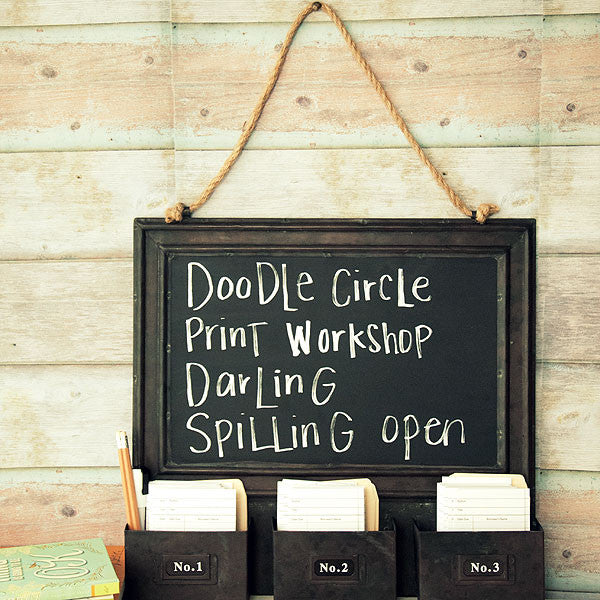 DooDLe CircLe
Print Workshop
DarLinG
SpiLLinG open
No.1
No.2
No.3